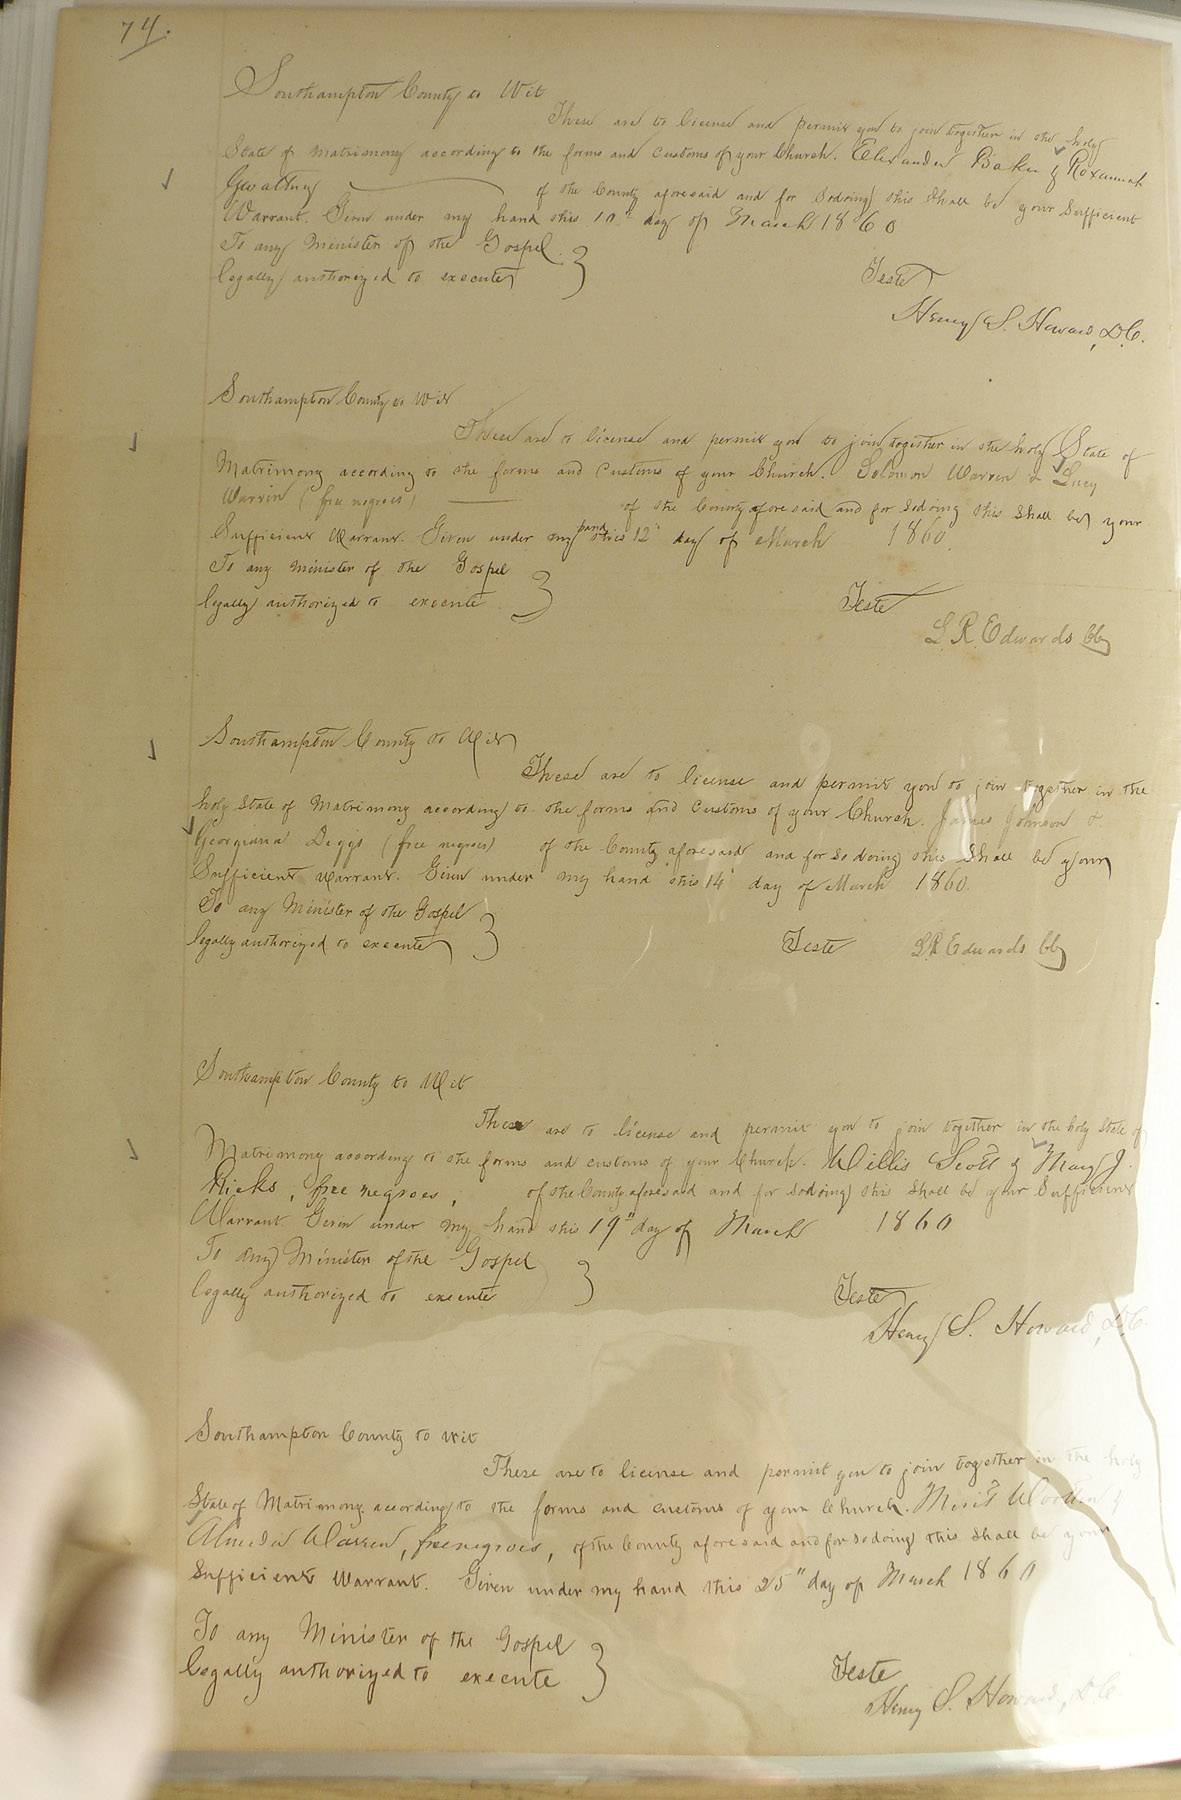 74.
Southampton County to Wit
These are to license and permit you to join together in the holy
State of Matrimony according to the forms and customs of your Church. Elexander Baker & Roxannah
Gwaltney of the County aforesaid and for so doing this shall be your Sufficient
Warrant. Given under my hand this 10th day of March 1860
To any Minister of the Gospel
legally authorized to execute
Teste
Henry S. Howard, D.C.
Southampton County to Wit
These are to license and permit you to join together in the holy State of
Matrimony according to the forms and Customs of your Church. Solomon Warren & Lucy
Warrin (free negroes) of the County aforesaid and for so doing this shall be your
Sufficient Warrant. Given under my hand this 12" day of March 1860.
To any Minister of the Gospel
legally authorized to execute
Teste
L R. Edwards Clk
Southampton County to Wit
These are to license and permit you to join together in the
holy State of Matrimony according to the forms and Customs of your Church. James Johnson &
Georgiana Diggs (free negroes) of the County aforesaid and for so doing this Shall be your
Sufficient warrant. Given under my hand this 14" day of March 1860.
To any Minister of the Gospel
legally authorized to execute
Teste L R Edwards Clk
Southampton County to Wit
These are to license and permit you to join together in the holy State of
Matrimony according to the forms and customs of your Church. Willis Scott & Mary J.
Ricks, free negroes, of the County aforesaid and for so doing this shall be your Sufficient
Warrant. Given under my hand this 19" day of March 1860
To any Minister of the Gospel
legally authorized to execute
Teste
Henry S. Howard, D.C.
Southampton County to wit
These are to license and permit you to join together in the holy
State of Matrimony according to the forms and customs of your Church. Wootten &
Warren, free negroes, of the County aforesaid and for so doing this shall be your
Sufficient Warrant. Given under my hand this 25" day of March 1860
To any Minister of the Gospel
legally authorized to execute
Teste
Henry S. Howard, D.C.